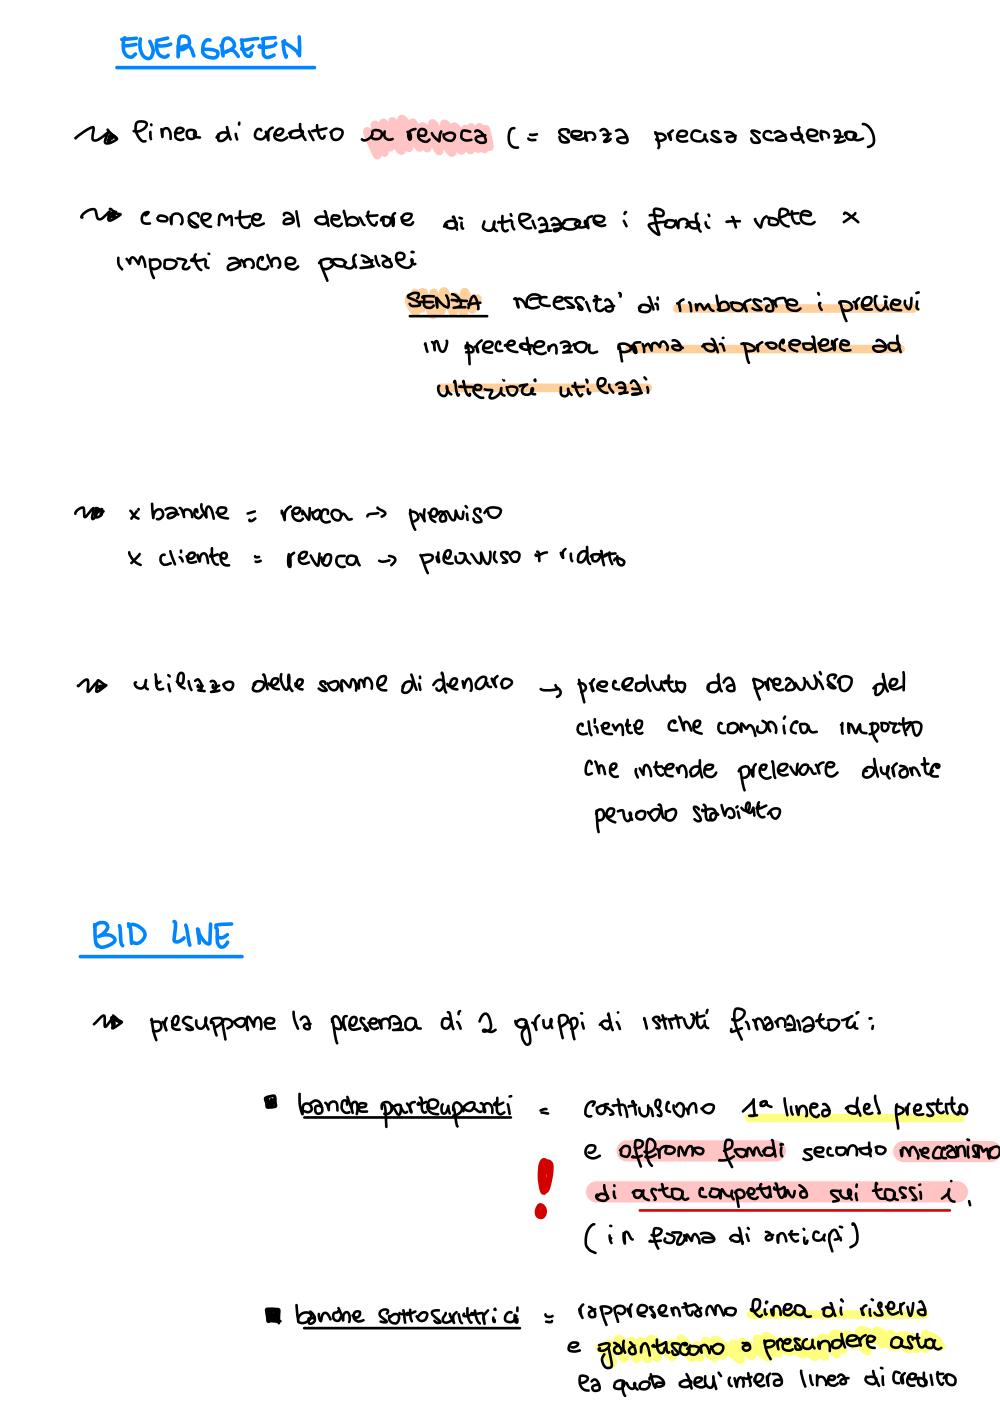 EVERGREEN
linea di credito a revoca (= senza precisa scadenza)
consente al debitore di utilizzare i fondi + volte x
importi anche parziali
SENZA necessità di rimborsare i prelievi
in precedenza prima di procedere ad
ulteriori utilizzi
x banche = revoca → preavviso
x cliente = revoca → preavviso + ridotto
utilizzo delle somme di denaro → preceduto da preavviso del
cliente che comunica importo
che intende prelevare durante
periodo stabilito
BID LINE
presuppone la presenza di 2 gruppi di istituti finanziatori:
banche partecipanti = costituiscono 1ª linea del prestito
e offrono fondi secondo meccanismo
! di asta competitiva sui tassi i.
(in forma di anticipi)
banche sottoscrittrici = rappresentano linea di riserva
e garantiscono a prescindere asta
la quota dell'intera linea di credito